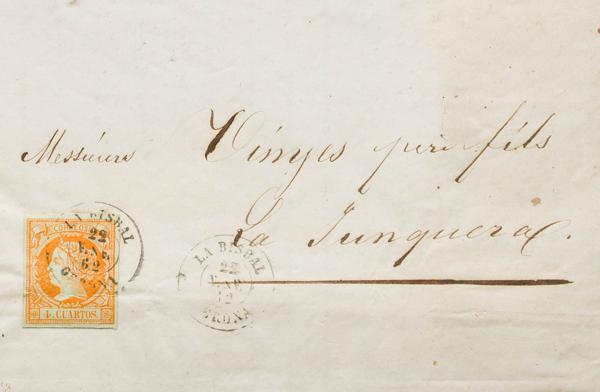 Messieurs
Vinyes pere fils
La Junquera.
LA BISBAL
22
ENE
62
GERONA
CORREOS
4 CUARTOS.
LA BISBAL
22
62
GERONA